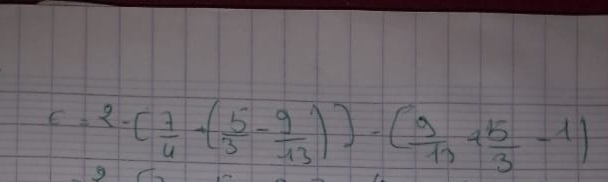 C = 2 - [7/4 + (5/3 - 9/13)] - (9/13 + 5/3 - 1)